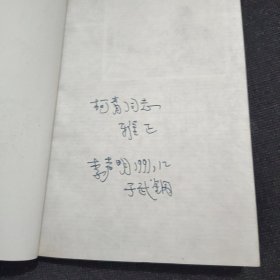 柯青同志
雅正
李声明 1991.12
于武钢